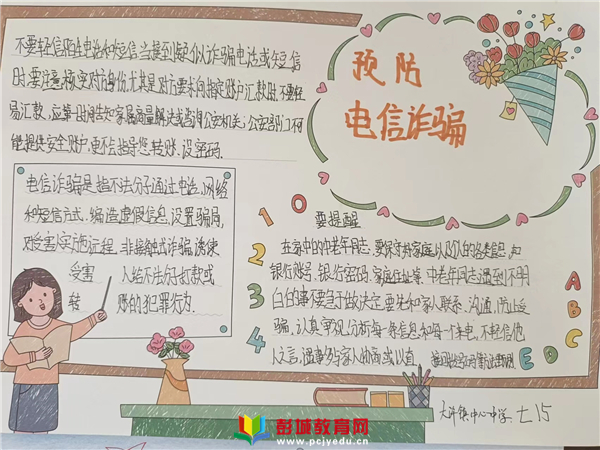 不要轻信陌生电话和短信,当接到疑似诈骗电话或短信
时,要注意核实对方身份,尤其是对方要求向指定账户汇款时,不要轻
易汇款,应第一时间告知家属商量解决或咨询公安机关,公安部门不可
能提供安全账户,更不会指导您转账、设密码.
预防
电信诈骗
电信诈骗是指不法分子通过电话、网络
和短信方式,编造虚假信息,设置骗局,
对受害人实施远程、非接触式诈骗,诱使
受害 人给不法分子打款或
转 账的犯罪行为.
1
2
3
4
要提醒
在家中的中老年同志,要保守好家庭人员的各类信息,如
银行账号、银行密码,家庭住址等,中老年同志遇到不明
白的事不要急于做决定,要先和家人联系、沟通,防止受
骗,认真审视分析每一条信息和每一个来电,不轻信他
人之言,遇事多与家人协商
A
B
C
D
E
大许镇中心中学 七15
彭城教育网
www.pcjyedu.cn